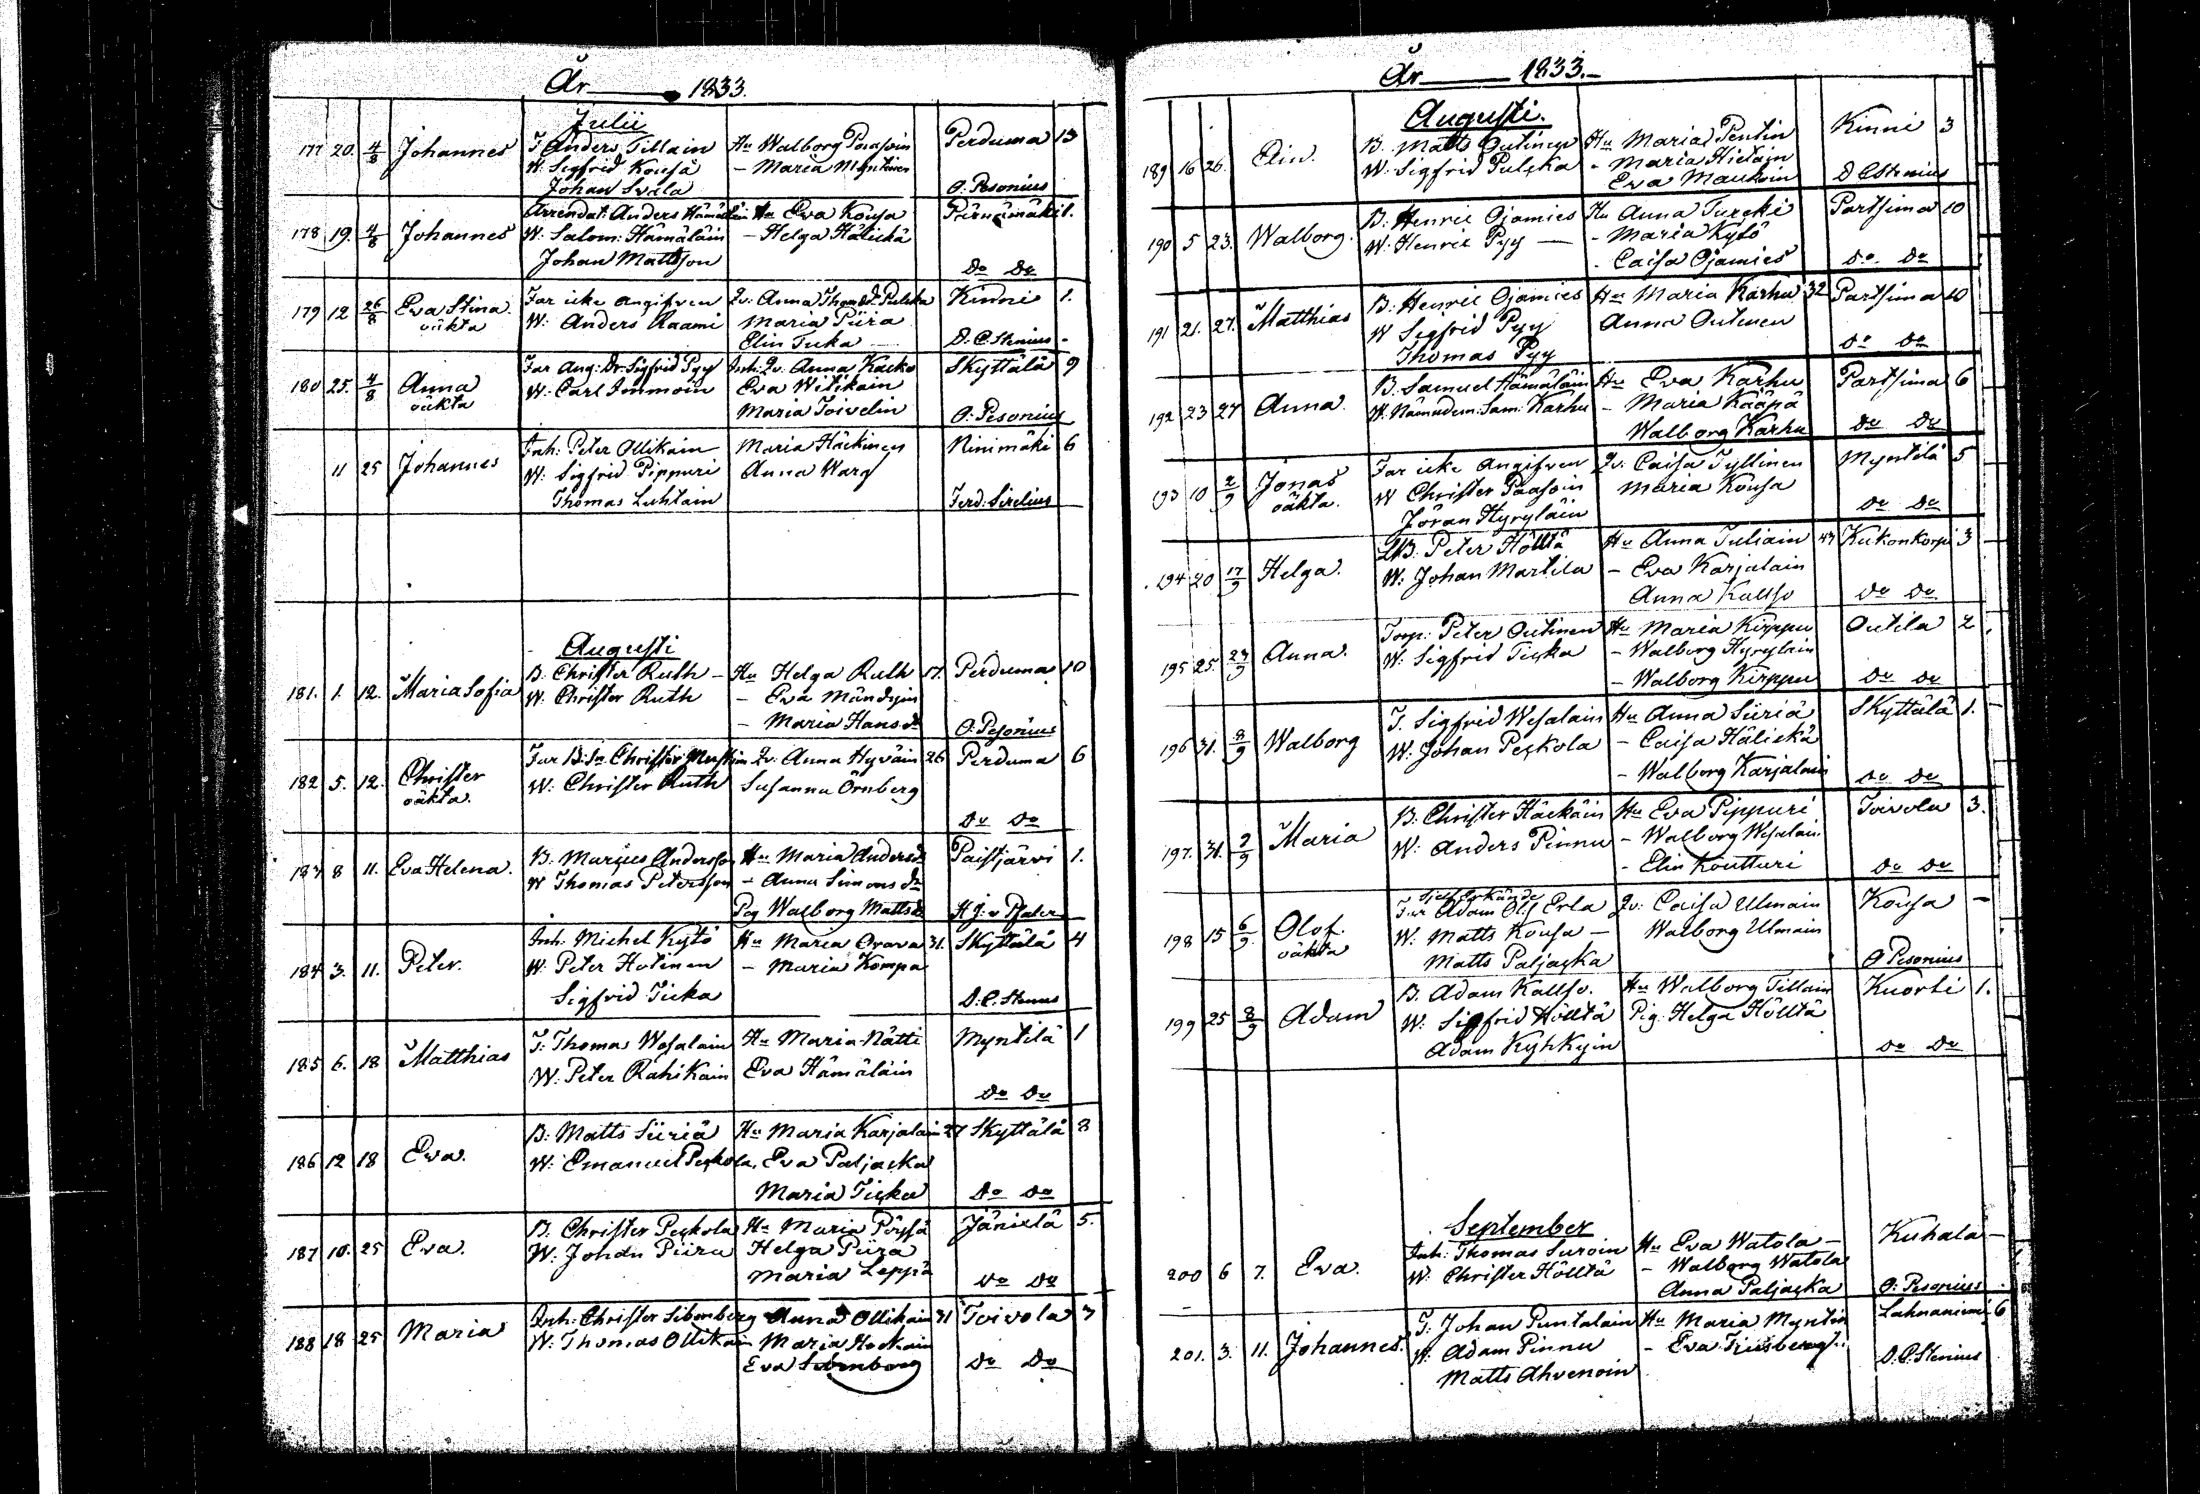 År 1833.
Julii
177 20. 4/8 Johannes T Anders Tillain Hu Walborg Paasoin Perduma 13
W. Sigfrid Kousa - Maria Myntinen
Johan Svala O. Pesonius
178 19. 4/8 Johannes Arrendat: Anders Hämäläin Hu Eva Kousa 1.
W. Salom: Hämäläin - Helga Hälickä
Johan Mattsson Do Do
179 12 26/8 Eva Stina Far icke angifven Qv: Anna Thomsdr Pulcka Kinni 1.
oäkta W: Anders Raami Maria Piira
Elin Tucka D. C. Stenius
180 25. 4/8 Anna Far Ang: Dr: Sigfrid Pyy Inh: Qv. Anna Kacko Skyttälä 9
oäkta W. Carl Immoin Eva Witikain
Maria Toivelin O. Pesonius
11 25 Johannes Inh: Peter Ollikain Maria Häckinen Ninimäki 6
W: Sigfrid Pippuri Anna Warg
Thomas Luhtain Ferd: Sirelius
Augusti
181. 1. 12. Maria Sofia B. Christer Ruth - Hu Helga Ruth 17. Perduma 10
W. Christer Ruth - Eva
- Maria Hansdr O. Pesonius
182 5. 12. Christer Far B: Sn Christer Qv. Anna Hyväin 26 Perduma 6
oäkta. W. Christer Ruth Susanna Örnberg
Do Do
183 8 11. Eva Helena. B. Marcus Andersson Hu Maria Andersdr Paistjärvi 1.
W Thomas Petersson - Anna Simonsdr
Pig Walborg Mattsdr
184 3. 11. Peter. Inh: Michel Kytö Hu Maria Orava 31. Skyttälä 4
W. Peter Hutinen - Maria Kompa
Sigfrid Ticka D. C. Stenius
185 6. 18 Matthias T: Thomas Wesalain Hu Maria Nätti Myntilä 1
W. Peter Rahikain Eva Hämäläin
Do Do
186 12 18 Eva. B: Matts Siiriä Hu Maria Karjalain 27 Skyttälä 8
W. Emanuel Peskola, Eva Paljacka
Maria Ticka Do Do
187 10. 25 Eva. B. Christer Peskola Hu Maria Pöyssä Jänislä 5.
W. Johan Piira Helga Piira
Maria Leppä Do Do
188 18 25 Maria Inh: Christer Sibenberg Anna Ollikain 31 Toivola 7
W. Thomas Ollikain Maria
Eva Sibenberg Do Do
År 1833.
Augusti.
189 16 26. Elin. B. Matts Outinen Hu Maria Pentin Kinni 3
W. Sigfrid Pulcka - Maria Hietain
Eva Maukoin D C Stenius
190 5 23. Walborg. B: Henric Ojamies Hu Anna Turcki Partsima 10
W. Henric Pyy - Maria Kytö
- Caisa Ojamies Do Do
191 21. 27. Matthias B: Henric Ojamies Hu Maria Karhu 32 Partsima 10
W Sigfrid Pyy Anna Outinen
Thomas Pyy Do Do
192 23 27 Anna. B. Samuel Hämäläin Hu Eva Karhu Partsima 6
W. Nämndem: Sam: Karhu - Maria Kääpä
Walborg Karhu Do Do
193 10 2/9 Jonas Far icke angifven Qv: Caisa Tyllinen Myntilä 5
oäkta. W Christer Paasoin Maria Kousa
Jöran Hyryläin Do Do
194 20 17/9 Helga. LB. Peter Hölltä Hu Anna Tuliain 43 Kukonkorpi 3
W. Johan Martila - Eva Karjalain
Anna Kallso Do Do
195 25. 23/9 Anna. Torp: Peter Outinen Hu Maria Kirppu Outila 2
W: Sigfrid Ticka - Walborg Hyryläin
- Walborg Kirppu Do Do
196 31. 8/9 Walborg T. Sigfrid Wesalain Hu Anna Siiriä Skyttälä 1.
W. Johan Peskola - Caisa Hälickä
- Walborg Karjalain Do Do
197. 31. 7/9 Maria B. Christer Häckäin Hu Eva Pippuri Toivola 3.
W: Anders Pinnu - Walborg Wesalain
- Elin Koutturi Do Do
198 15 6/9. Olof. Far Adam Ols Erla Qv: Caisa Ulmain Kousa -
oäkta W. Matts Kousa - Walborg Ulmain
Matts Paljacka O Pesonius
199 25 8/9 Adam B. Adam Kallso. Hu Walborg Tillain Kuorti 1.
W: Sigfrid Hölltä Pig: Helga Hölltä
Adam Kyhkyin Do Do
September
200 6 7. Eva. Inh: Thomas Suroin Hu Eva Watola - Kuhala -
W. Christer Hölltä - Walborg Watola
Anna Paljacka O: Pesonius
201. 3. 11. Johannes. T. Johan Puntalain Hu Maria Myntin Lahnaniemi 6
W. Adam Pinnu - Eva Friisberg
Matts Ahvenoin D. C. Stenius